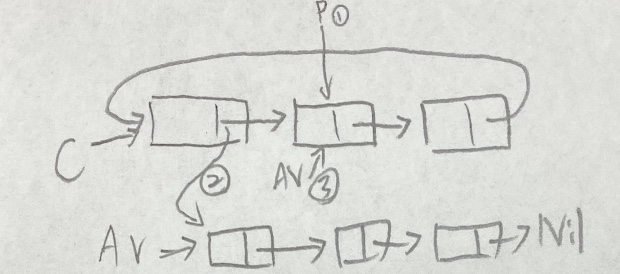 P①
C
②
AV③
AV
Nil